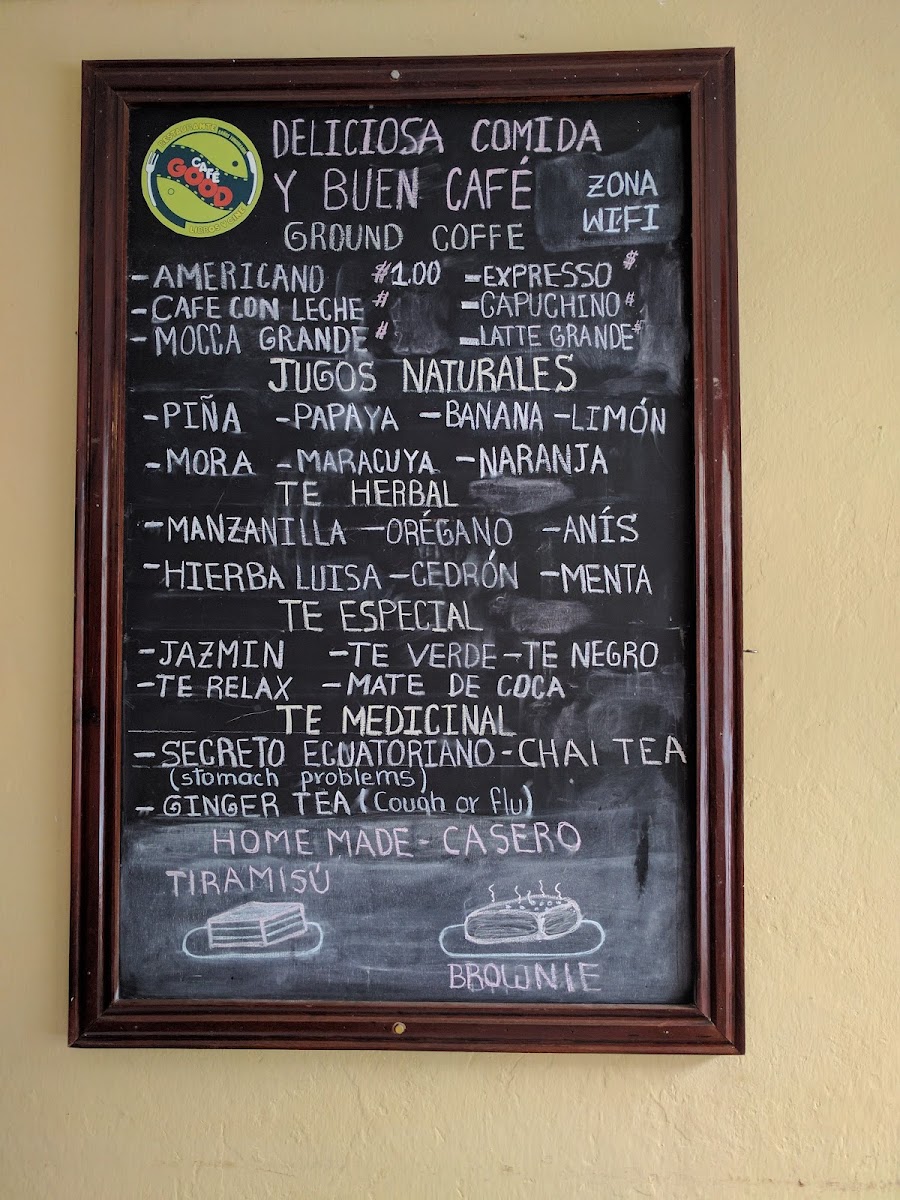 RESTAURANTE
CAFÉ
GOOD
DELICIOSA COMIDA
Y BUEN CAFÉ
ZONA
WIFI
GROUND COFFE
-AMERICANO $1.00 -EXPRESSO $
-CAFE CON LECHE $ -CAPUCHINO $
-MOCCA GRANDE $ -LATTE GRANDE $
JUGOS NATURALES
-PIÑA -PAPAYA -BANANA -LIMÓN
-MORA -MARACUYA -NARANJA
TE HERBAL
-MANZANILLA -ORÉGANO -ANÍS
-HIERBA LUISA -CEDRÓN -MENTA
TE ESPECIAL
-JAZMIN -TE VERDE -TE NEGRO
-TE RELAX -MATE DE COCA
TE MEDICINAL
-SECRETO ECUATORIANO -CHAI TEA
(stomach problems)
-GINGER TEA (Cough or flu)
HOME MADE - CASERO
TIRAMISÚ
BROWNIE